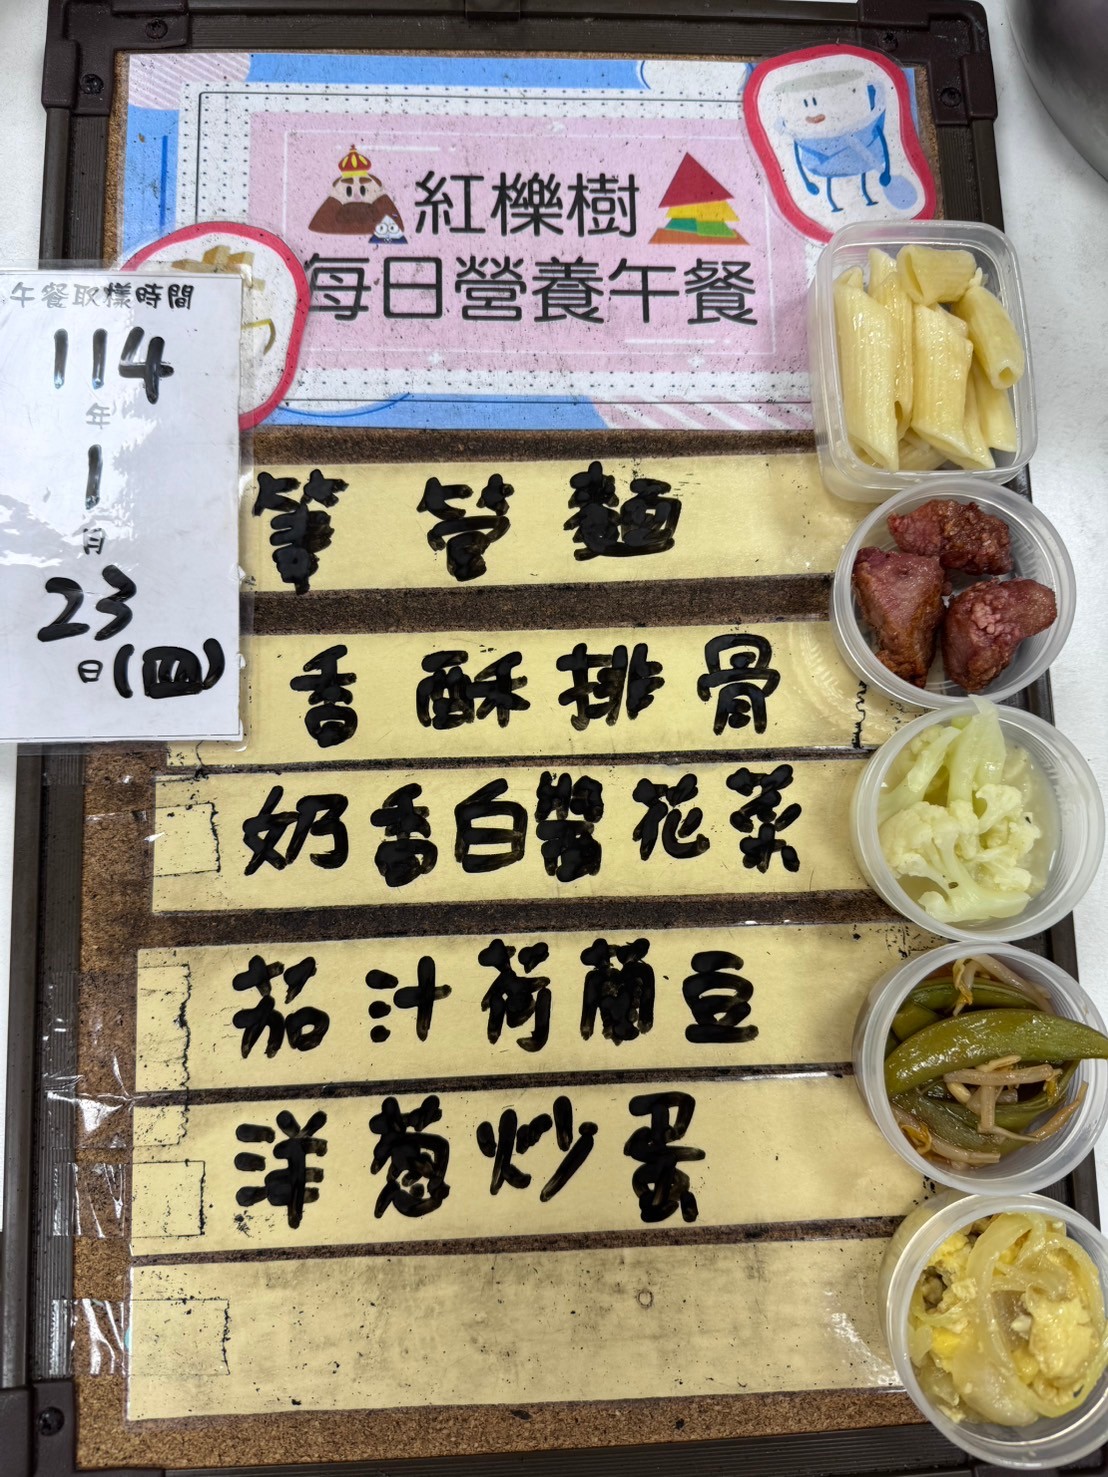 紅櫟樹
每日營養午餐
午餐取樣時間
114
年
1
月
23
日(四)
筆管麵
香酥排骨
奶香白醬花菜
茄汁荷蘭豆
洋蔥炒蛋